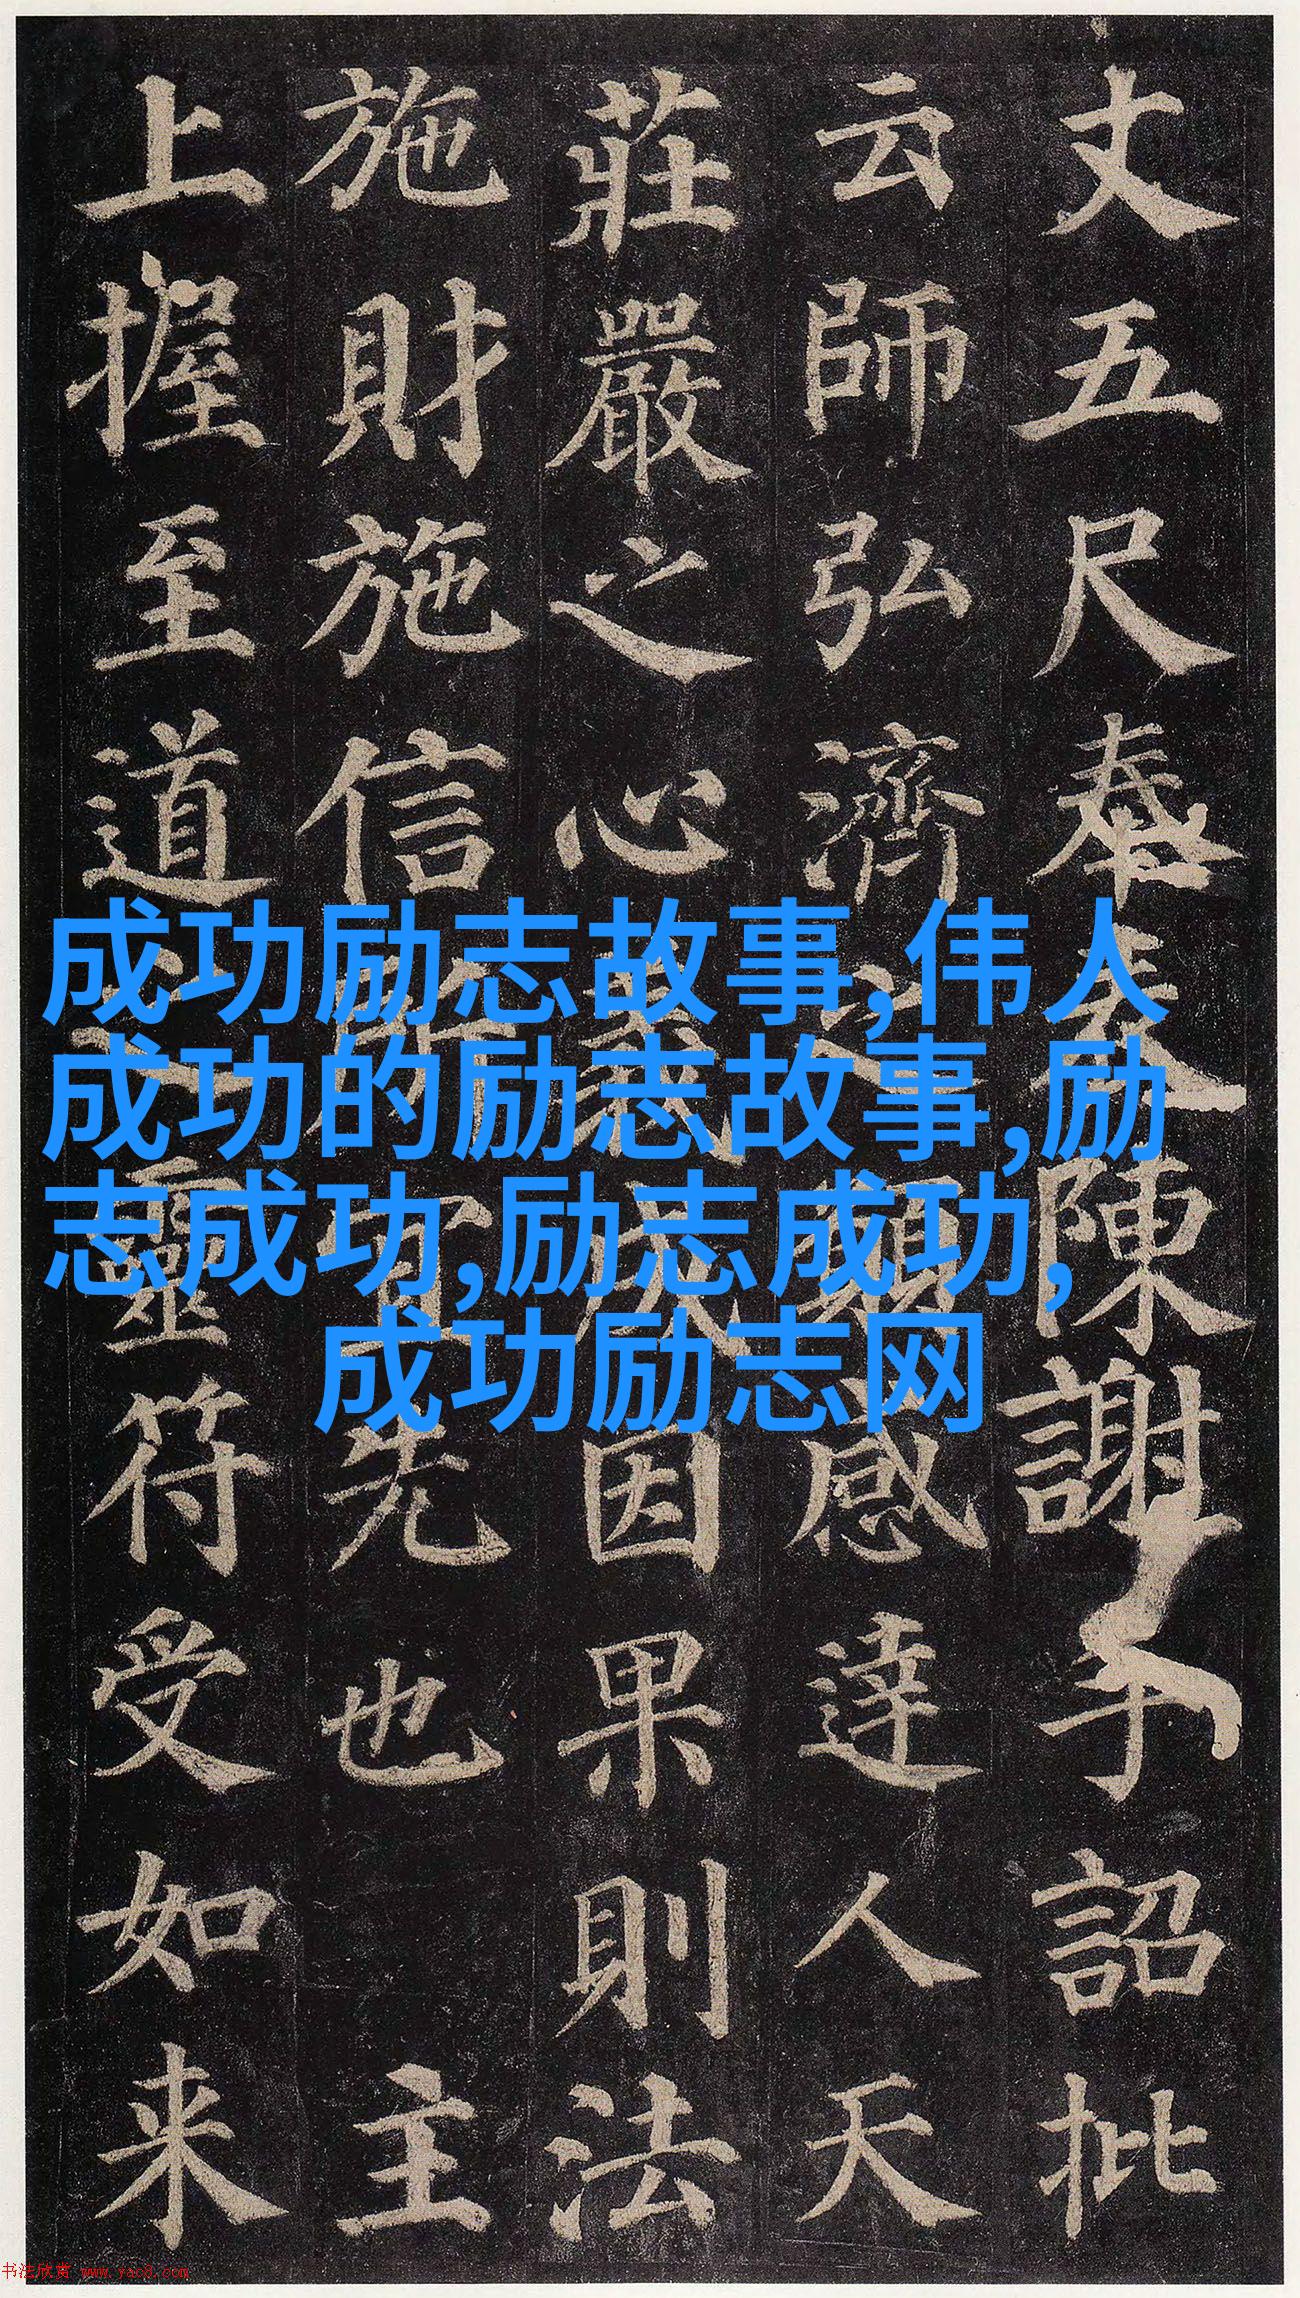 丈五尺奉表陳謝手詔批
云師弘濟之願感達人天
莊嚴之心義成因果則法
施財施信所宜先也 主
上握至道之靈符受如来
成功励志故事,伟人
成功的励志故事,励
志成功,励志成功,
成功励志网
书法欣赏 www.yac8.com